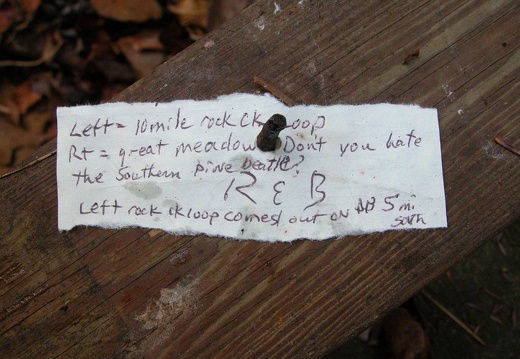 Left = 10 mile rock ck loop
Rt = great meadow Don't you hate
the Southern pine beatle?
R & B
Left rock ck loop comes out on 5 mi
south